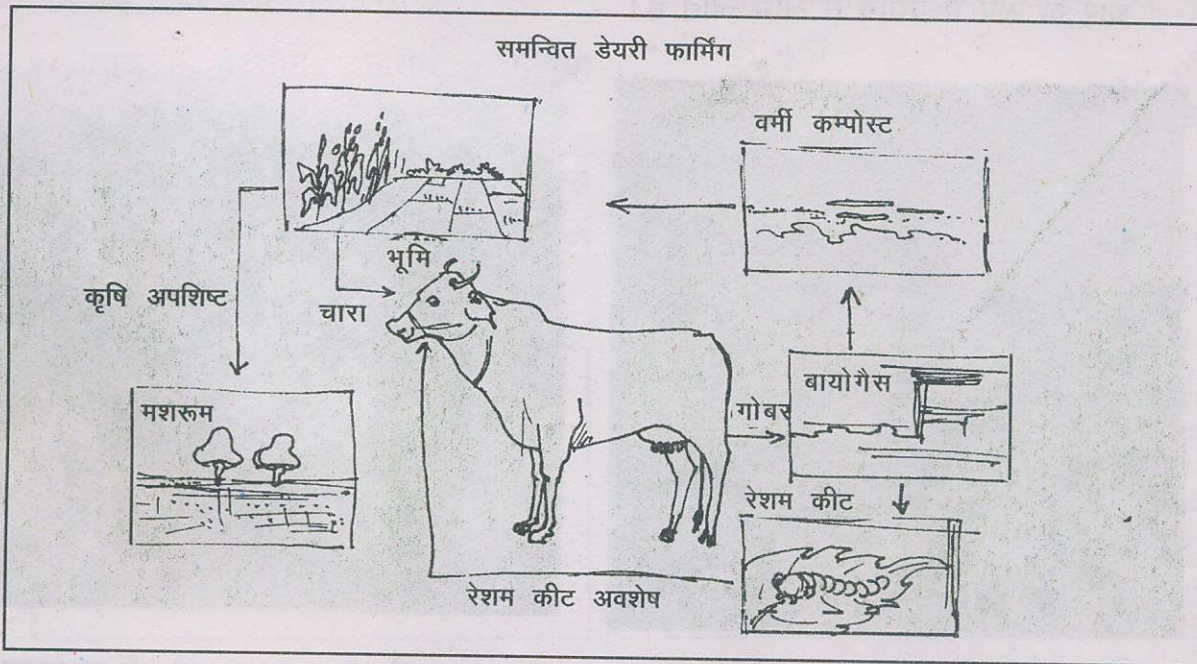 समन्वित डेयरी फार्मिंग
वर्मी कम्पोस्ट
भूमि
कृषि अपशिष्ट
चारा
मशरूम
बायोगैस
गोबर
रेशम कीट
रेशम कीट अवशेष